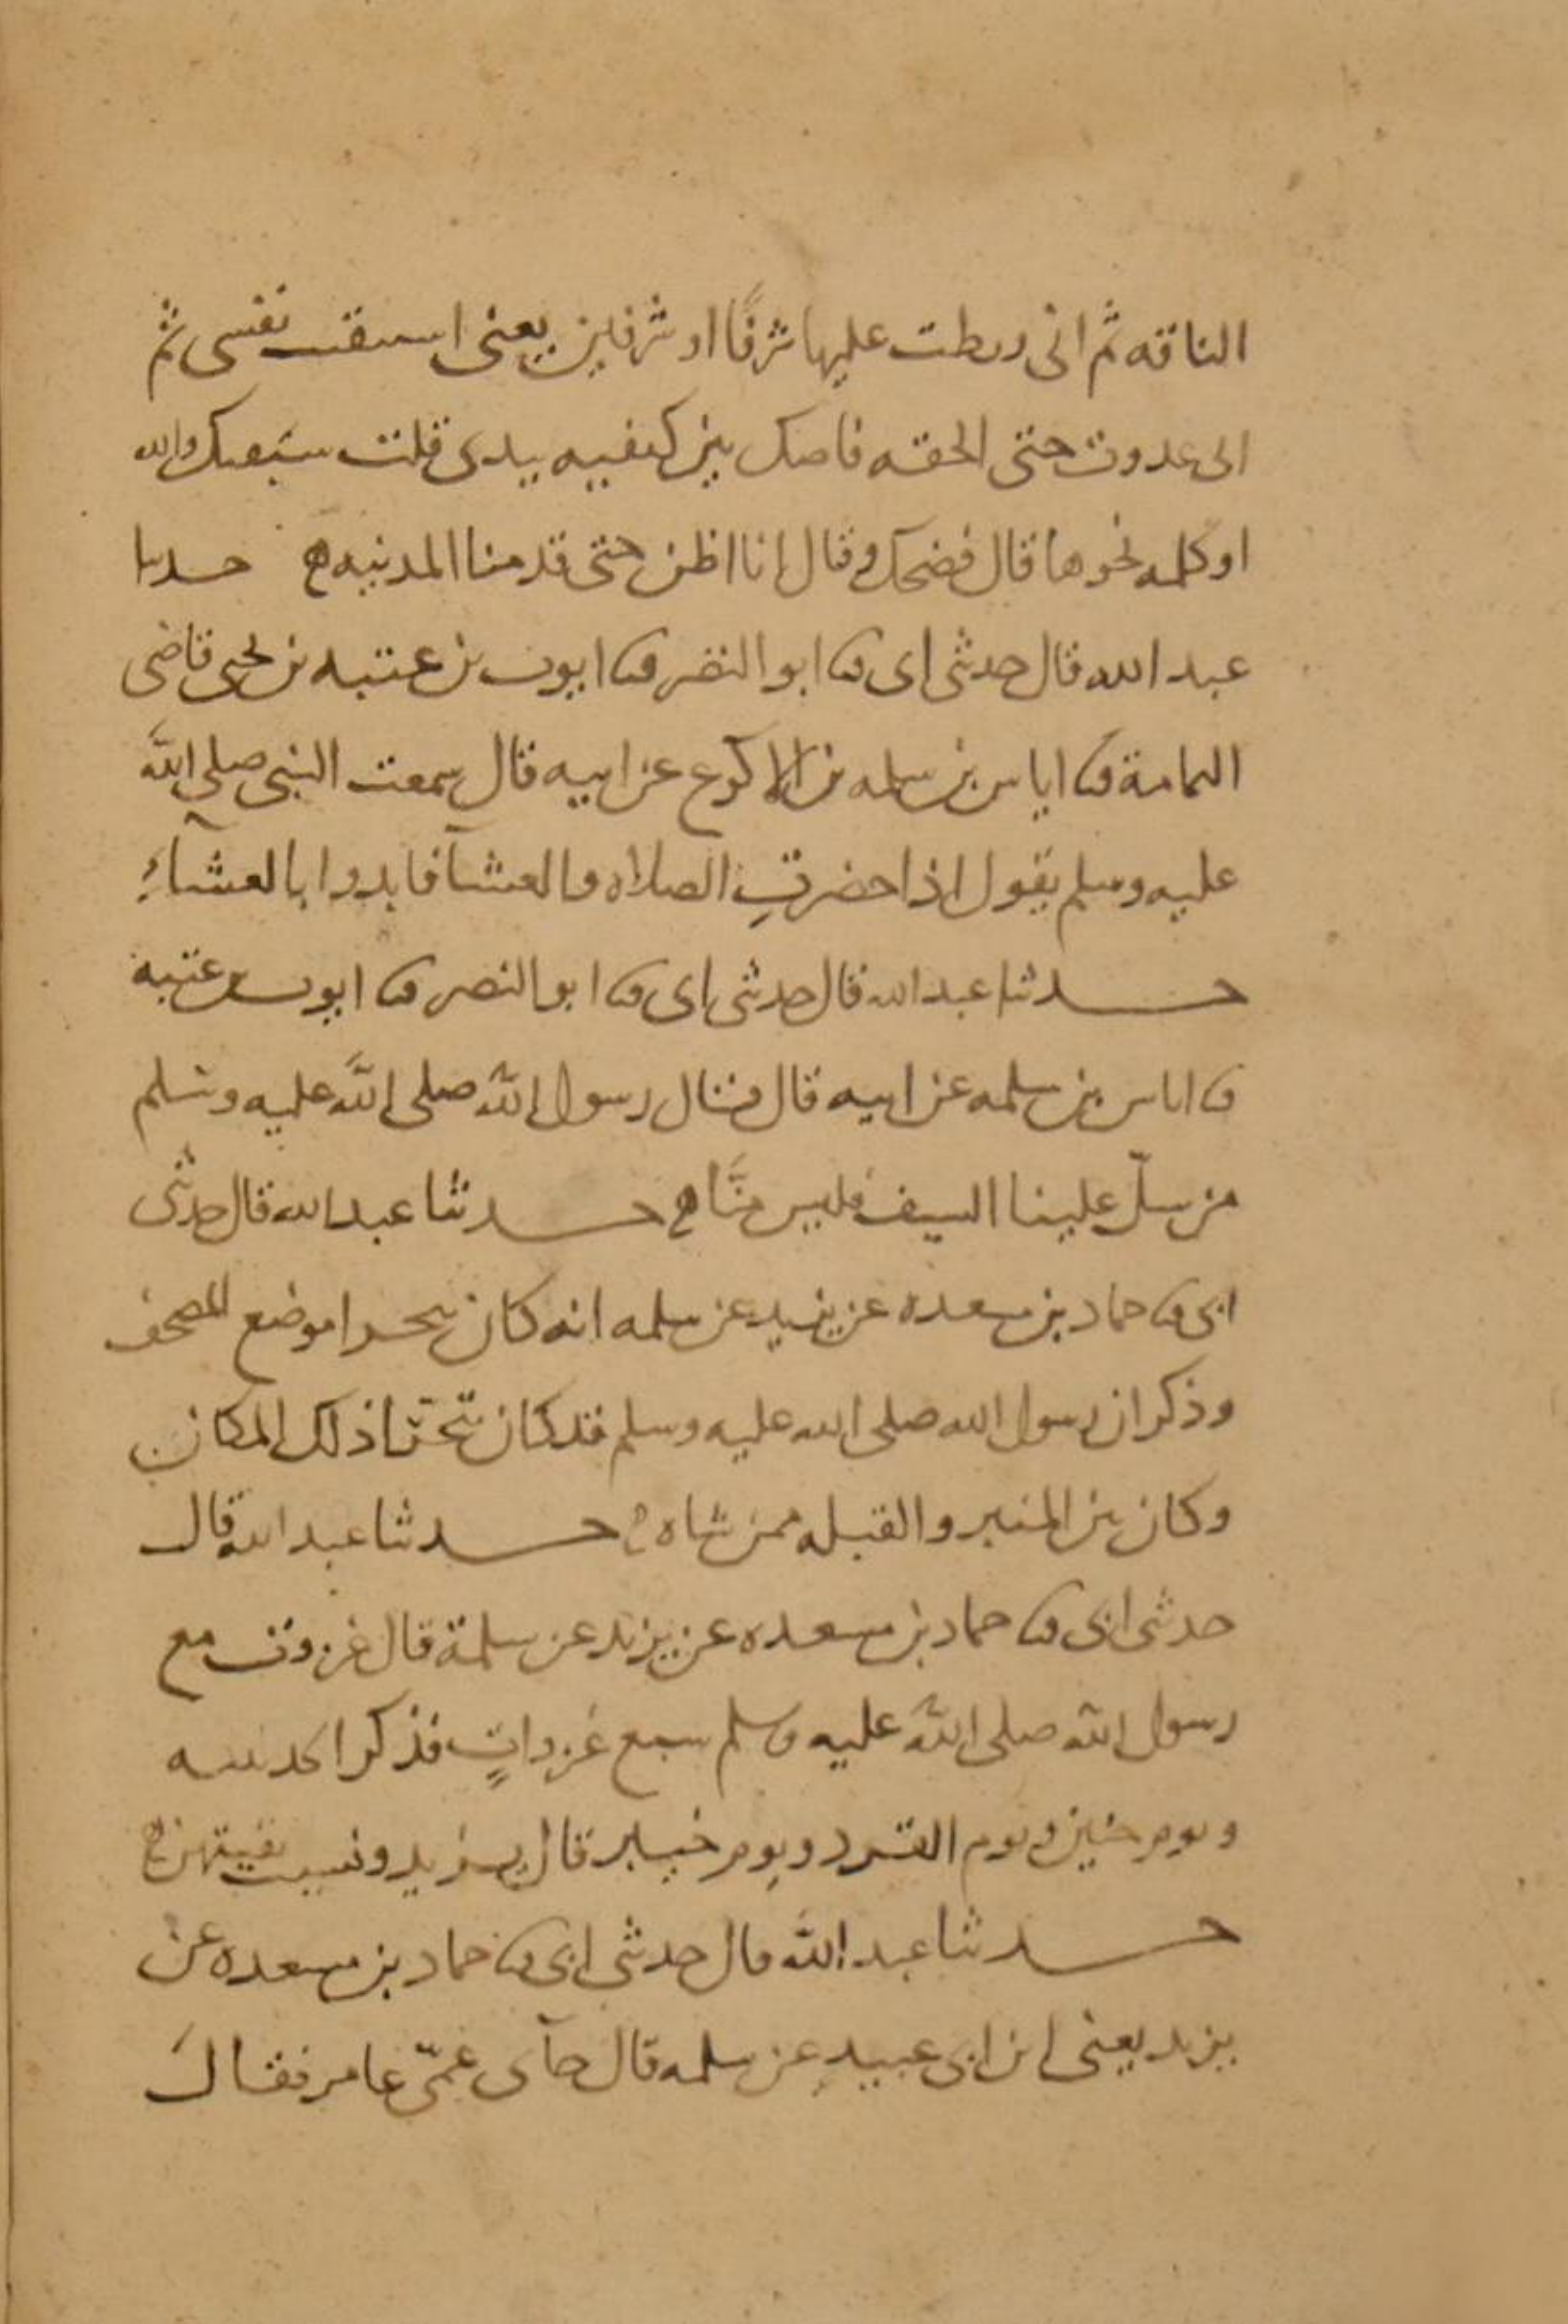 الناقه ثم انى ربطت عليها شرفًا او شرفين يعنى استبقيت نفسى ثم
انى عدوت حتى الحقه فاصك بين كتفيه بيدى قلت سبقتك والله
او كلمه نحوها قال فضحك وقال انا اظن حتى قدمنا المدينه حدثنا
عبد الله قال حدثنى ابى ثنا ابو النضر ثنا ايوب بن عتبه بن يحيى قاضى
اليمامة ثنا اياس بن سلمه بن الاكوع عن ابيه قال سمعت النبى صلى الله
عليه وسلم يقول اذا حضرتِ الصلاه والعشآ فابدوا بالعشآءِ
حدثنا عبد الله قال حدثنى ابى ثنا ابو النضر ثنا ايوب بن عتبه
ثنا اياس بن سلمه عن ابيه قال قال رسول الله صلى الله عليه وسلم
من سلّ علينا السيف فليس منَّا حدثنا عبد الله قال حدثنى
ابى ثنا حماد بن مسعده عن يزيد عن سلمه انه كان يتحرا موضع المصحف
وذكر ان رسول الله صلى الله عليه وسلم قد كان يتحرّا ذلك المكان
وكان بين المنبر والقبله ممر شاه حدثنا عبد الله قال
حدثنى ابى ثنا حماد بن مسعده عن يزيد عن سلمة قال غزوت مع
رسول الله صلى الله عليه وسلم سبع غزواتٍ فذكر الحديبيه
ويوم حنين ويوم القرد ويوم خيبر قال يزيد ونسيت بقيتهن
حدثنا عبد الله قال حدثنى ابى ثنا حماد بن مسعده عن
يزيد يعنى ابن ابى عبيد عن سلمه قال جآنى عمّى عامر فقال